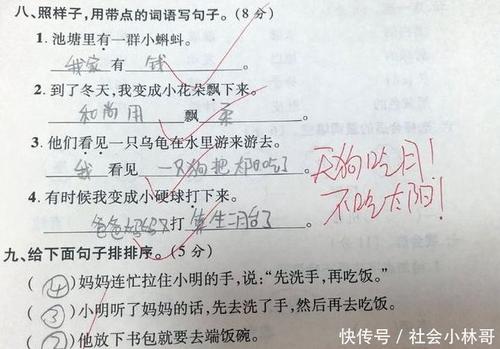 八、照样子,用带点的词语写句子。(8分)
1. 池塘里有一群小蝌蚪。
我家 有 钱
2. 到了冬天,我变成小花朵飘下来。
和尚用 飘柔
3. 他们看见一只乌龟在水里游来游去。
我 看见 一只狗把太阳吃了
天狗吃月!
不吃太阳!
4. 有时候我变成小硬球打下来。
爸爸妈妈 打 算生二月台了
九、给下面句子排排序。(5分)
(④)妈妈连忙拉住小明的手,说:“先洗手,再吃饭。”
(③)小明听了妈妈的话,先去洗了手,然后再去吃饭。
(②)他放下书包就要去端饭碗。
快传号/社会小林哥